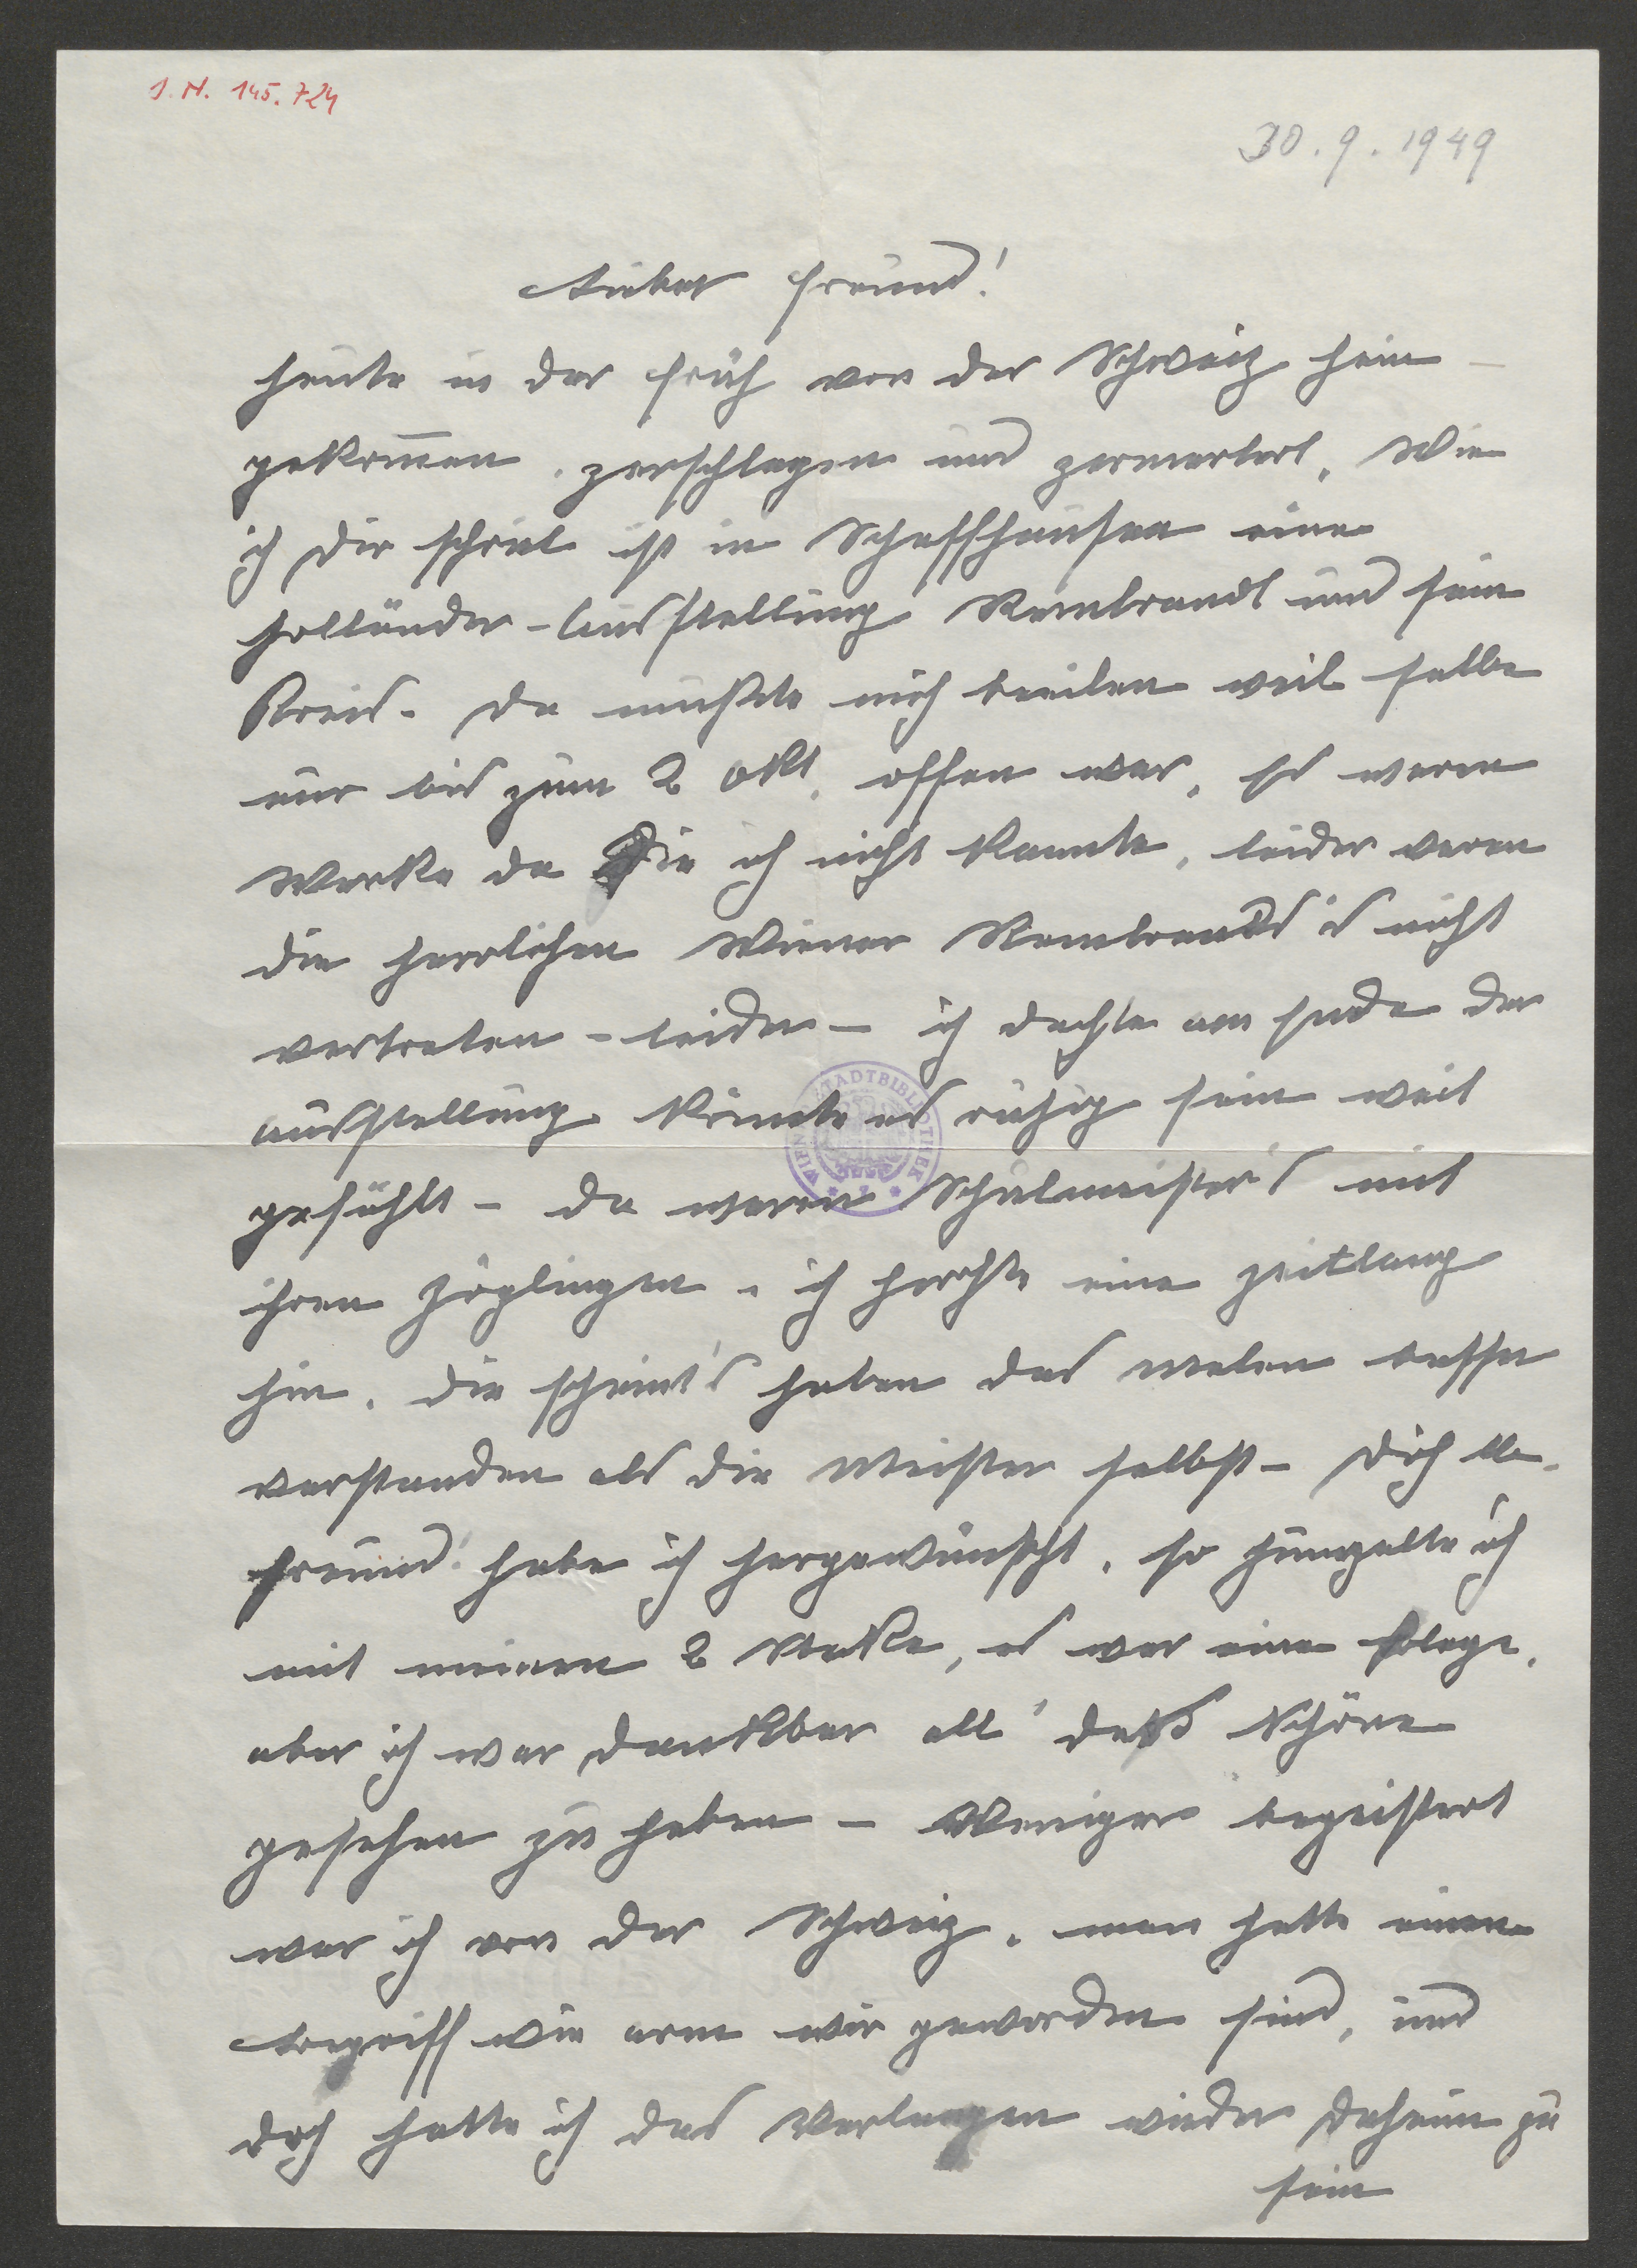 I. N. 145.724
30.9.1949
Lieber Freund!
Heute in der Früh von der Schweiz heim-
gekommen, zerschlagen und zermartert. Wie
ich Dir schrieb ist in Schaffhausen eine
Holländer-Ausstellung Rembrandt und sein
Kreis. Da mußte mich beeilen weil selbe
nur bis zum 2 Okt. offen war, es waren
Werke da die ich nicht kannte, leider waren
die herrlichen Wiener Rembrandts's nicht
vertreten - leider - ich dachte am Ende der
Ausstellung könnte es ruhig sein weit
gefühlt - da waren Schulmeister's mit
ihren Zöglingen. ich horchte eine zeitlang
hin. die scheint's haben das malen besser
verstanden als die Meister selbst - Dich lb.
Freund! habe ich hergewünscht. so humpelte ich
mit meinen 2 Stöcke, es war eine Plage.
aber ich war dankbar all' daß Schöne
gesehen zu haben - Weniger begeistert
war ich von der Schweiz. man hatte einen
begriff wie arm wir geworden sind, und
doch hatte ich das Verlangen wieder daheim zu
sein
WIENER STADTBIBLIOTHEK